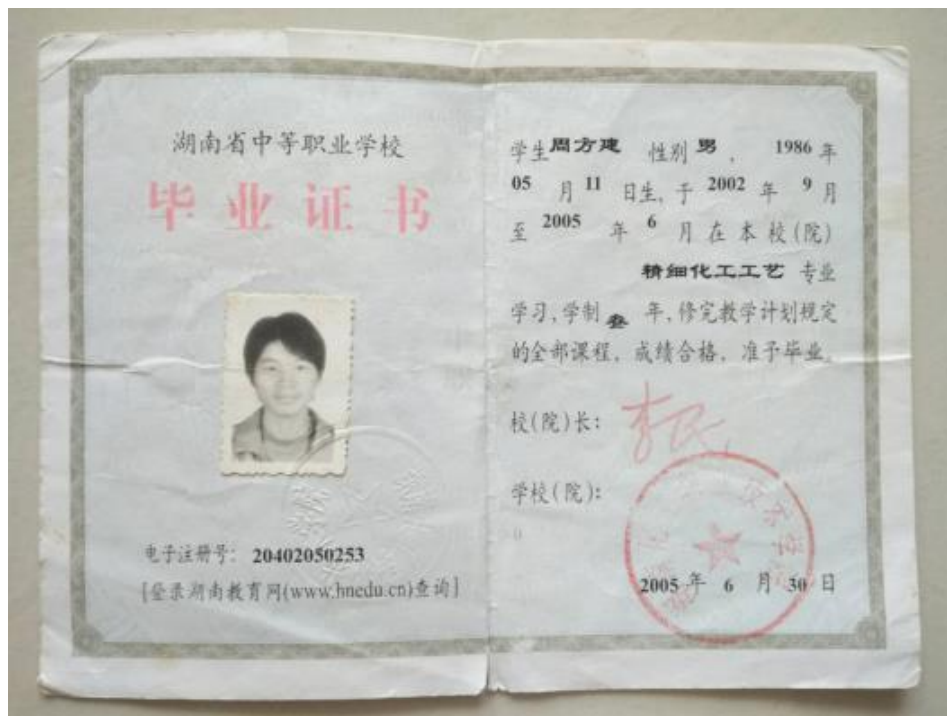 湖南省中等职业学校
毕业证书
电子注册号: 20402050253
[登录湖南教育网(www.hnedu.cn)查询]
学生周方建 性别 男 , 1986 年
05 月 11 日生, 于 2002 年 9 月
至 2005 年 6 月 在 本 校(院)
精细化工工艺 专业
学习,学制 叁 年,修完教学计划规定
的全部课程, 成绩合格, 准予毕业。
校(院)长: 李民
学校(院):
2005 年 6 月 30 日